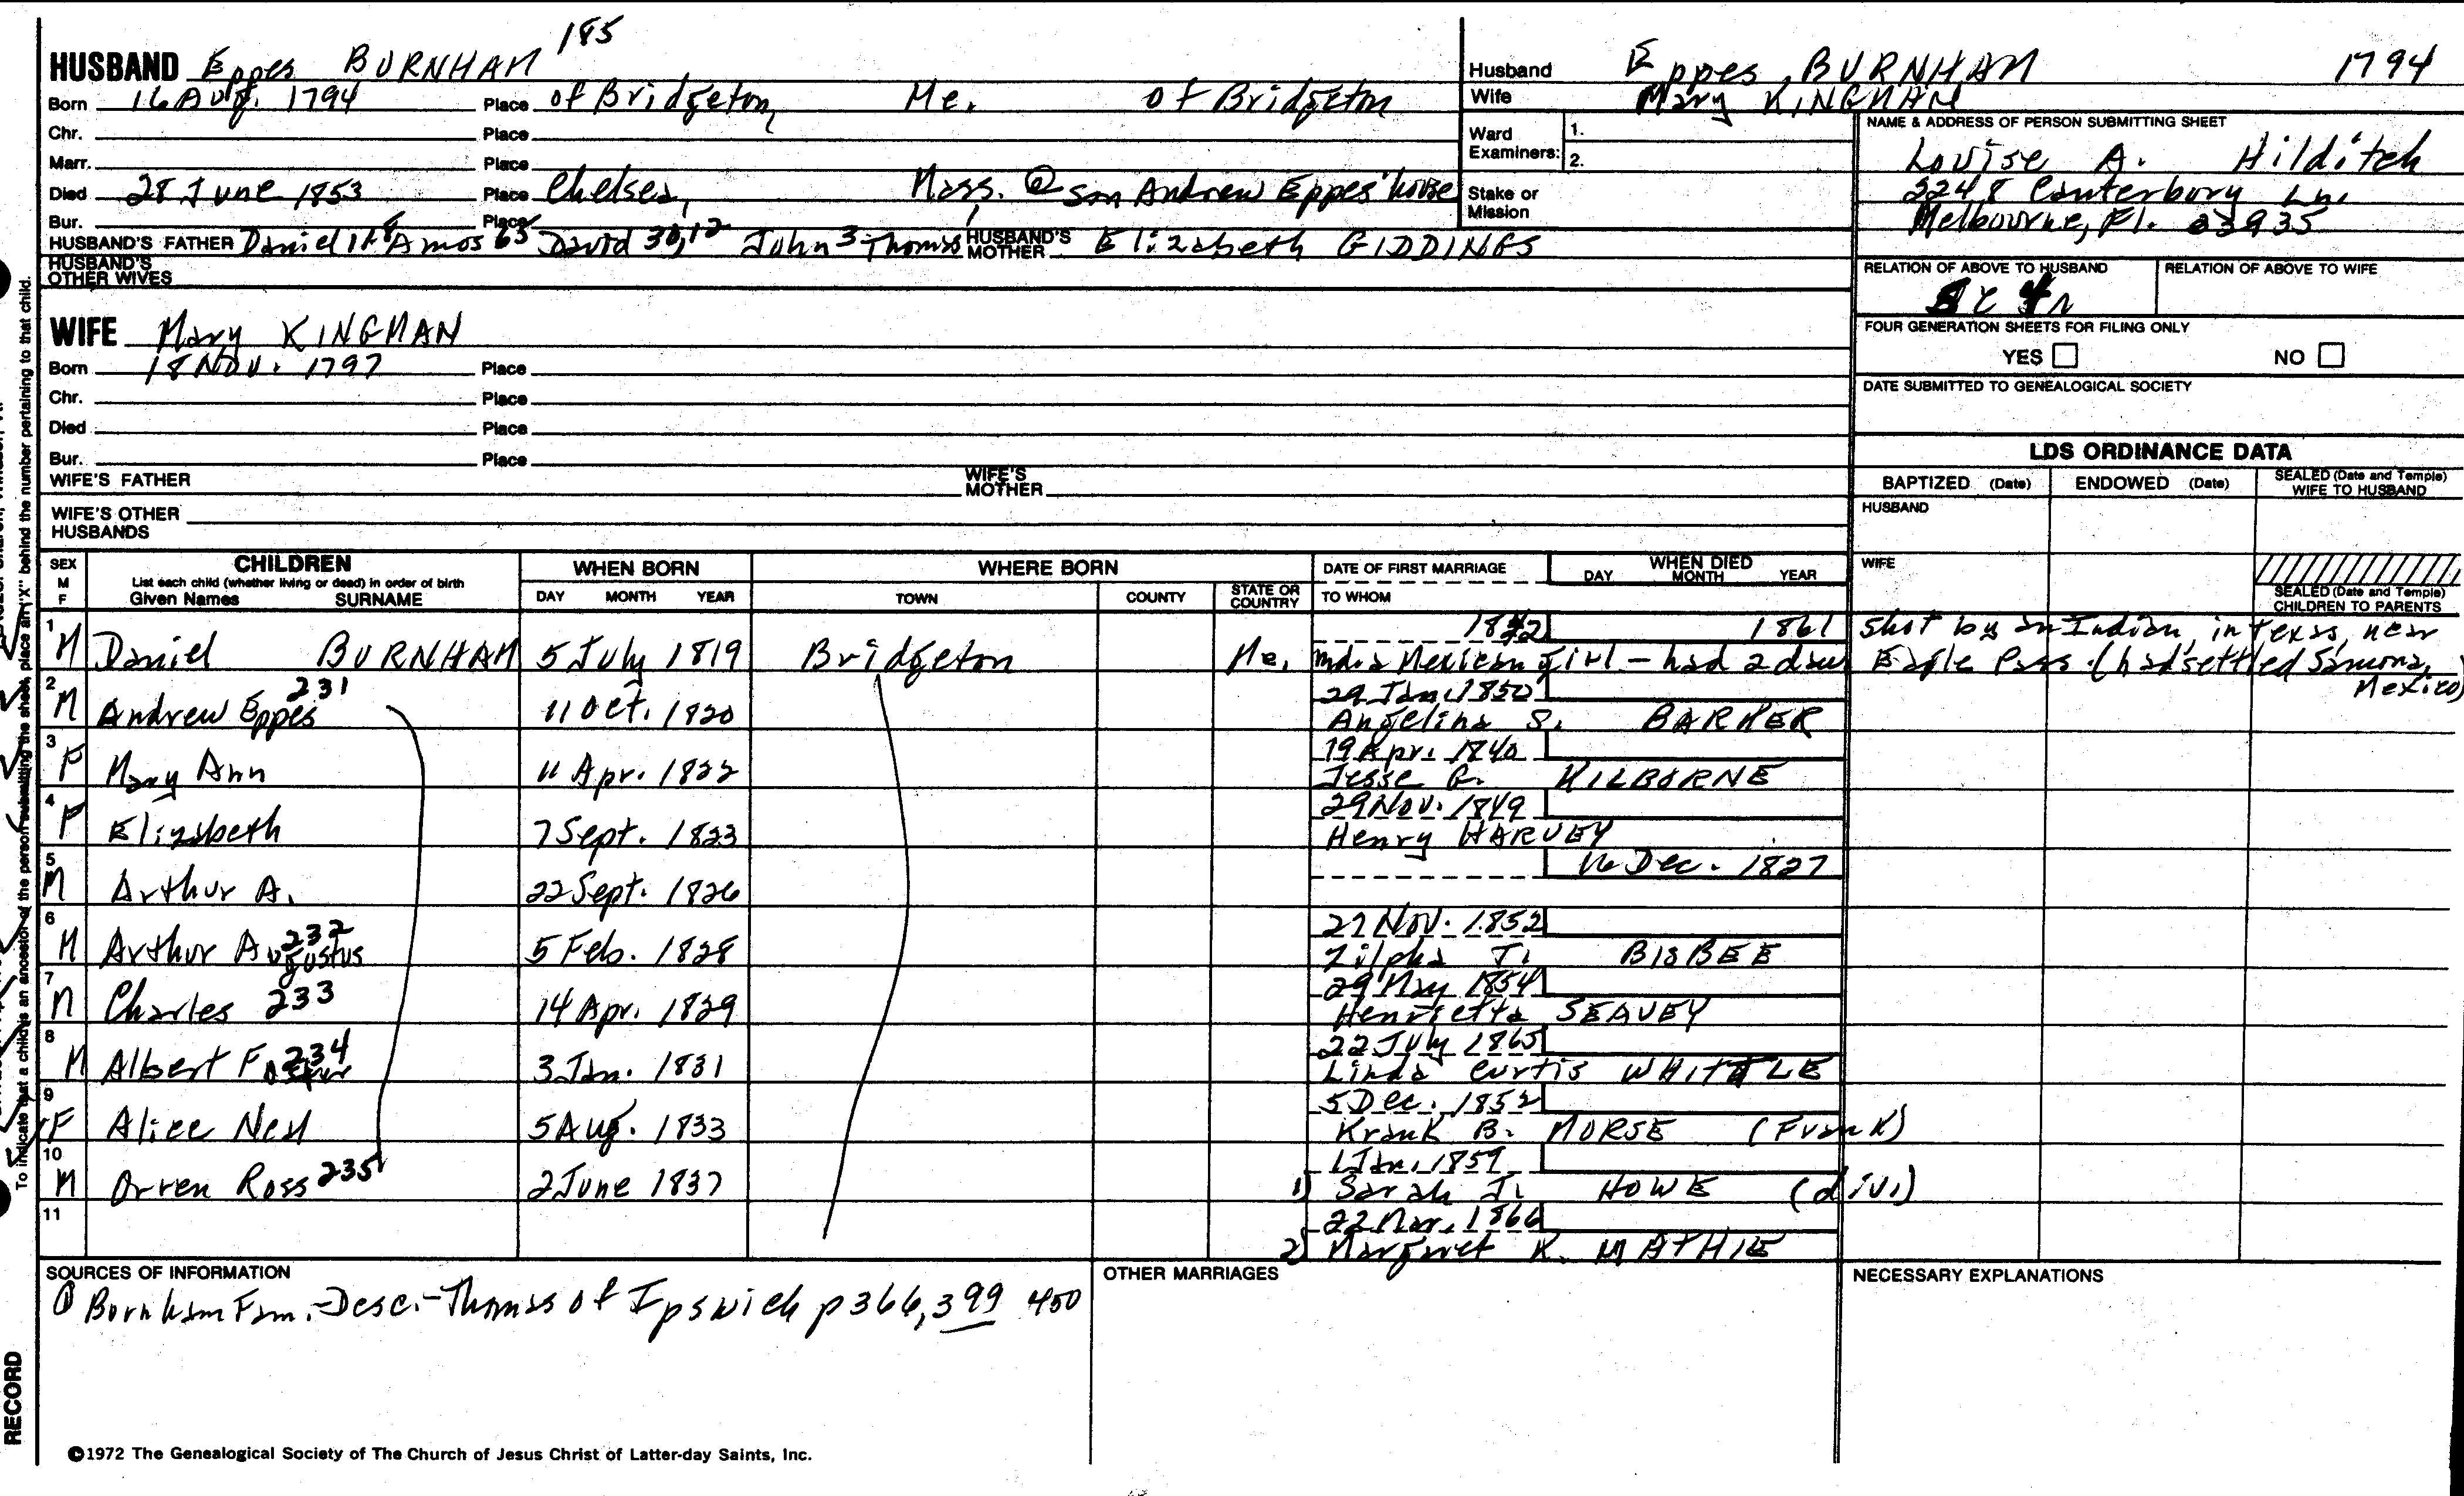 185
HUSBAND Eppes BURNHAM
Born 16 Aug. 1794 Place of Bridgeton, Me. of Bridgeton
Chr. Place
Marr. Place
Died 28 June 1853 Place Chelsea, Mass. @ son Andrew Eppes' house
Bur. Place
HUSBAND'S FATHER Daniel 118 Amos 65 David 30,12 John 3 Thomas 1 HUSBAND'S MOTHER Elizabeth GIDDINGS
HUSBAND'S OTHER WIVES
Husband Eppes BURNHAM 1794
Wife Mary KINGMAN
Ward Examiners: 1.
2.
Stake or Mission
NAME & ADDRESS OF PERSON SUBMITTING SHEET
Louise A. Hilditch
2248 Canterbury Ln.
Melbourne, Fl. 33935
RELATION OF ABOVE TO HUSBAND RELATION OF ABOVE TO WIFE
FOUR GENERATION SHEETS FOR FILING ONLY
YES NO
DATE SUBMITTED TO GENEALOGICAL SOCIETY
WIFE Mary KINGMAN
Born 18 Nov. 1797 Place
Chr. Place
Died Place
Bur. Place
WIFE'S FATHER WIFE'S MOTHER
WIFE'S OTHER HUSBANDS
LDS ORDINANCE DATA
BAPTIZED (Date) ENDOWED (Date) SEALED (Date and Temple) WIFE TO HUSBAND
HUSBAND
WIFE
SEALED (Date and Temple) CHILDREN TO PARENTS
SEX M F
CHILDREN
List each child (whether living or dead) in order of birth
Given Names SURNAME
WHEN BORN
DAY MONTH YEAR
WHERE BORN
TOWN COUNTY STATE OR COUNTRY
DATE OF FIRST MARRIAGE
TO WHOM
WHEN DIED
DAY MONTH YEAR
1 1842 1861 shot by an Indian, in Texas, near
M Daniel BURNHAM 5 July 1819 Bridgeton Me. md. a Mexican girl - had 2 dau Eagle Pass. (had settled Samona, Mexico)
2 231 29 Jan. 1850
M Andrew Eppes 11 Oct. 1820 Angelina S. BARKER
3 19 Apr. 1840
F Mary Ann 11 Apr. 1822 Jesse G. KILBORNE
4 29 Nov. 1849
F Elizabeth 7 Sept. 1823 Henry HARVEY
5 16 Dec. 1827
M Arthur A. 22 Sept. 1826
6 232 27 Nov. 1852
M Arthur Augustus 5 Feb. 1828 Zilpha J. BISBEE
7 29 May 1854
M Charles 233 14 Apr. 1829 Henrietta SEAVEY
8 234 22 July 1865
M Albert F. 3 Jan. 1831 Linda Curtis WHITTLE
9 5 Dec. 1852
F Alice Neal 5 Aug. 1833 Krank B. MORSE (Frank)
10 1 Jan. 1859
M Orren Ross 235 2 June 1837 1) Sarah J. HOWE (div.)
11 22 Mar. 1866
2) Margaret K. MATHIE
SOURCES OF INFORMATION
① Burnham Fam. - Desc. - Thomas of Ipswich p 366, 399 400
OTHER MARRIAGES
NECESSARY EXPLANATIONS
©1972 The Genealogical Society of The Church of Jesus Christ of Latter-day Saints, Inc.
To indicate that a child is an ancestor of the person submitting the sheet, place an "X" behind the number pertaining to that child.
RECORD